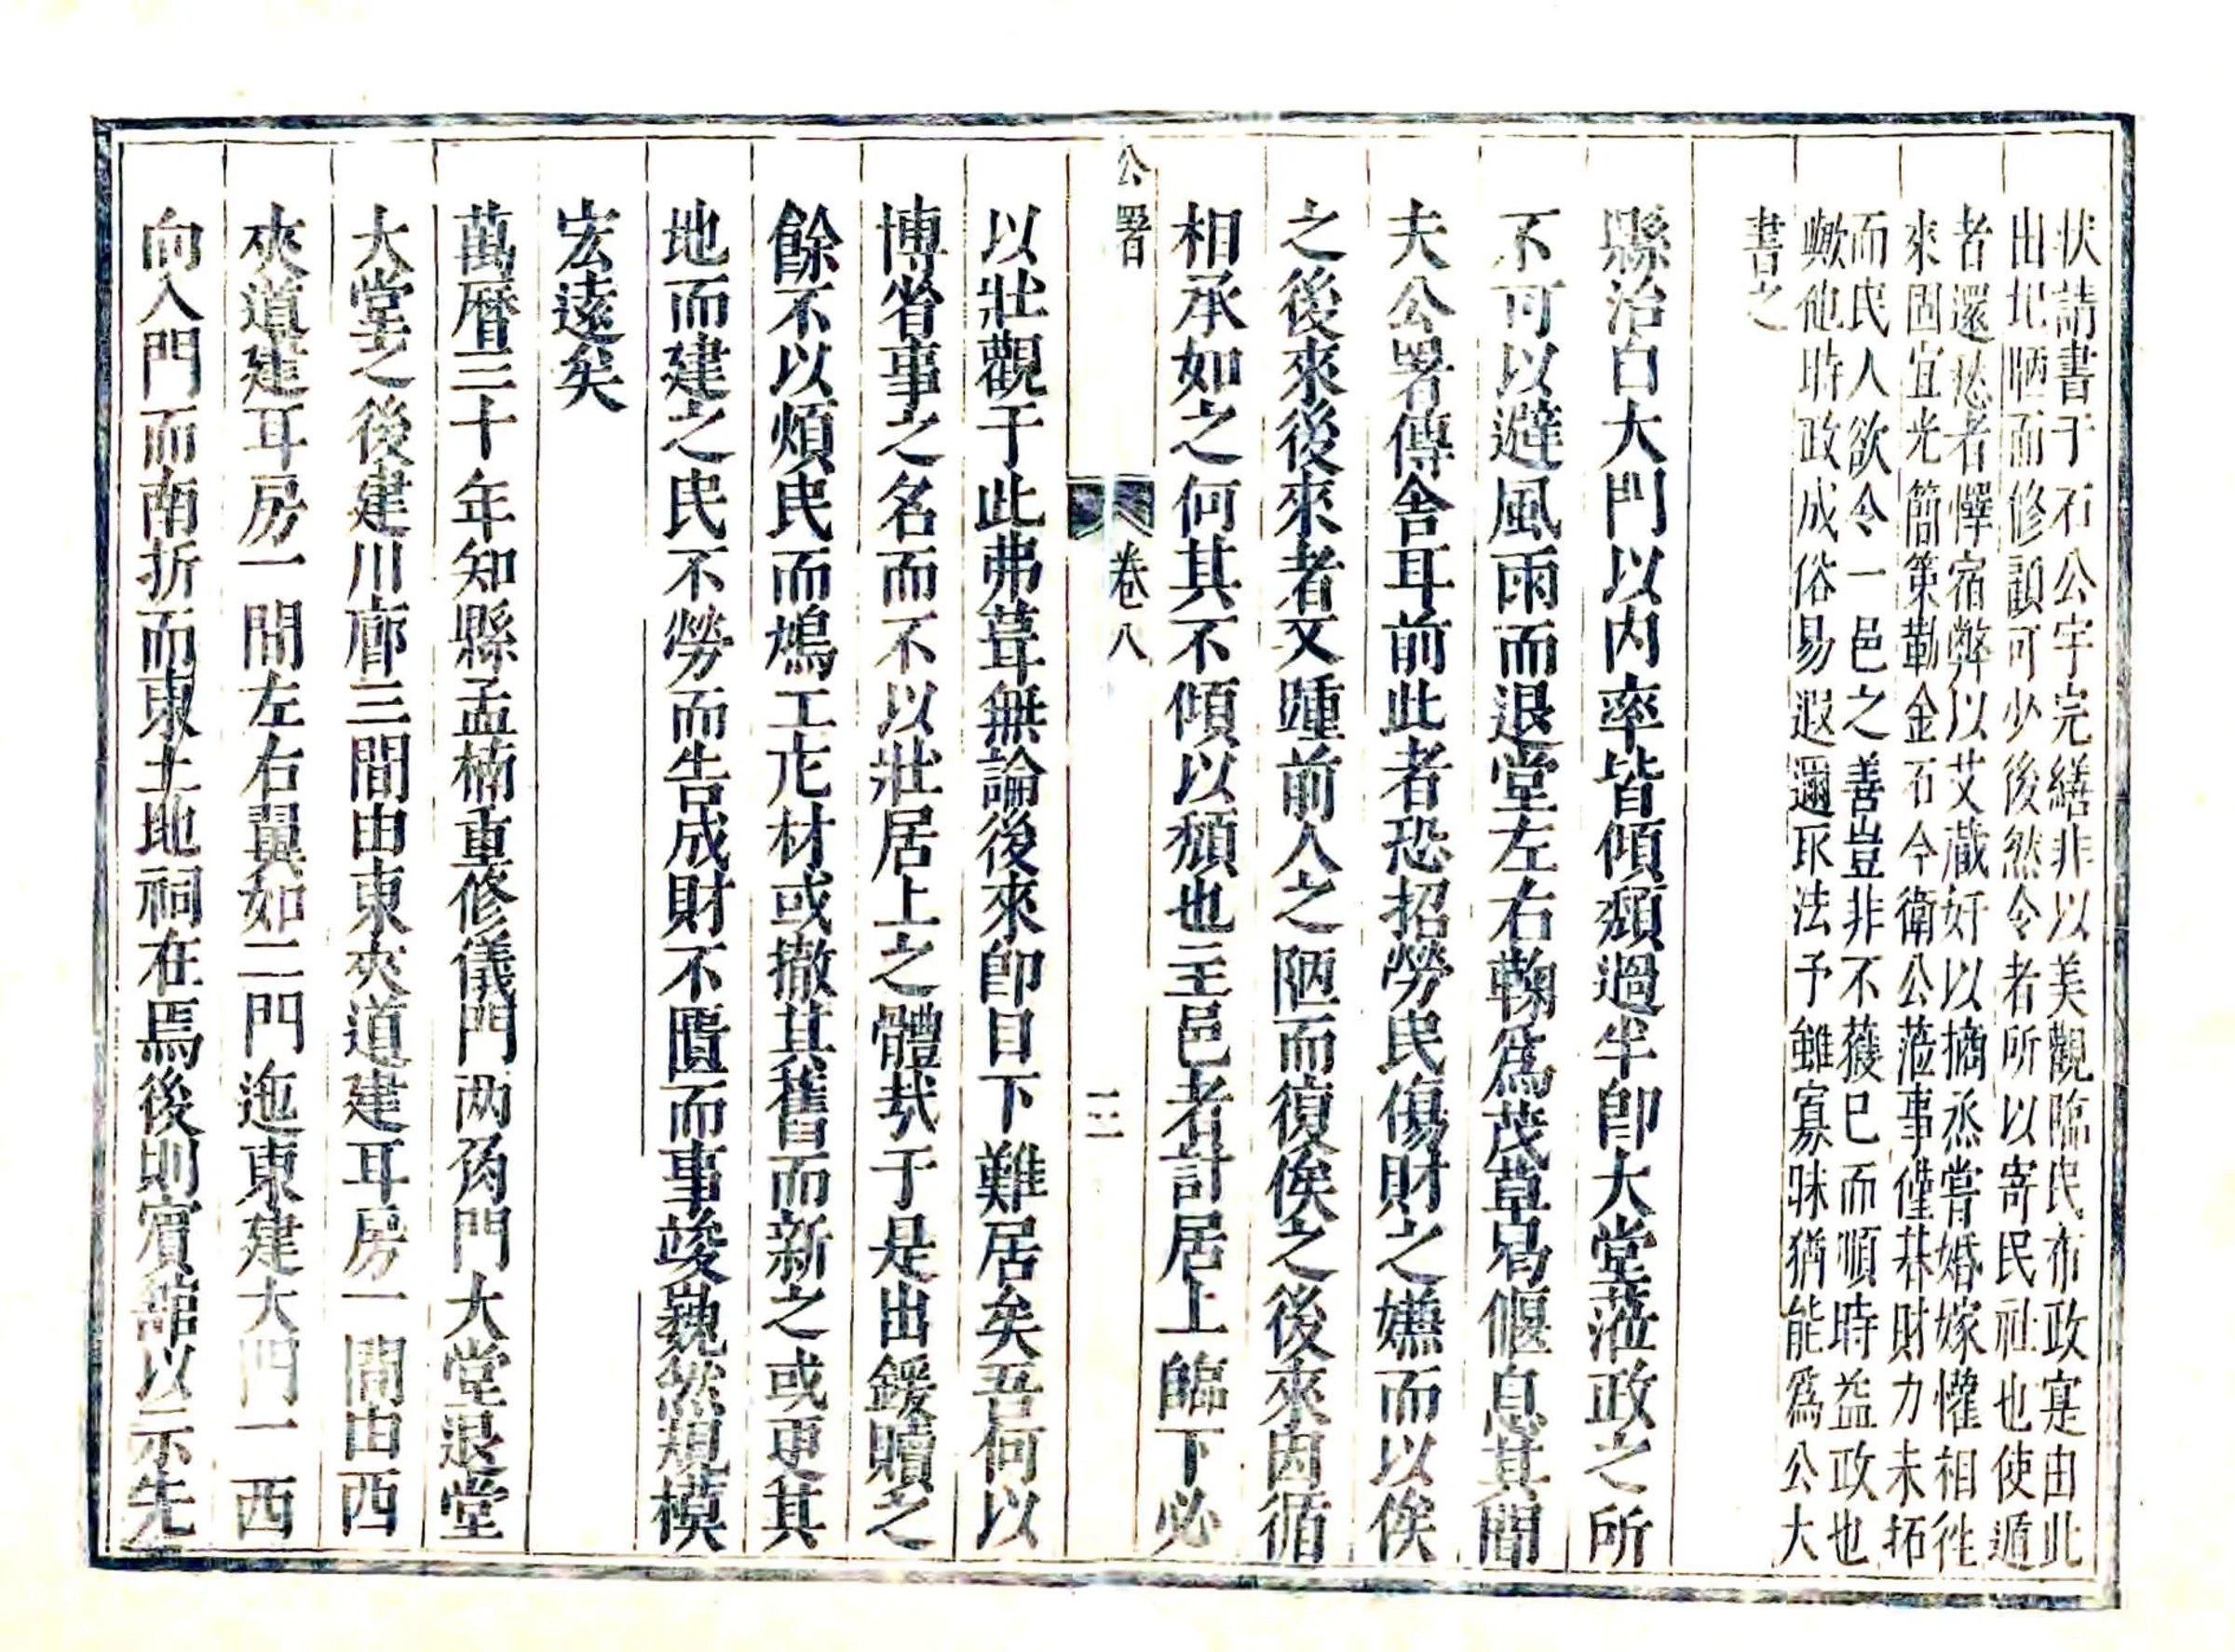 状請書于石公宇完繕非以美觀臨民布政寔由此
出圮陋而修顧可少後然令者所以寄民社也使遁
者還愁者懌宿弊以艾蔵好以摘烝嘗婚嫁懽相徃
來固宜光簡策勒金石今衛公蒞事僅朞財力未拓
而民人欲令一邑之善豈非不獲已而順時益政也
歟他時政成俗易遐邇取法予雖寡昧猶能爲公大
書之
縣治自大門以内率皆傾頽過半卽大堂蒞政之所
不可以避風雨而退堂左右鞠爲茂草曷偃息其間
夫公署傳舍耳前此者恐招勞民傷財之嫌而以俟
之後來後來者又踵前人之陋而復俟之後來因循
相承如之何其不傾以頽也主邑者計居上臨下必
公署 卷八 三
以壯觀于此弗葺無論後來卽目下難居矣吾何以
博省事之名而不以壯居上之體㢤于是出鍰贖之
餘不以煩民而鳩工庀材或撤其舊而新之或更其
地而建之民不勞而告成財不匱而事竣巍然規模
宏遠矣
萬曆三十年知縣孟楠重修儀門两角門大堂退堂
大堂之後建川廊三間由東夾道建耳房一間由西
夾道建耳房一間左右翼如二門迤東建大門一西
向入門而南折而東土地祠在焉後則賔舘以示先